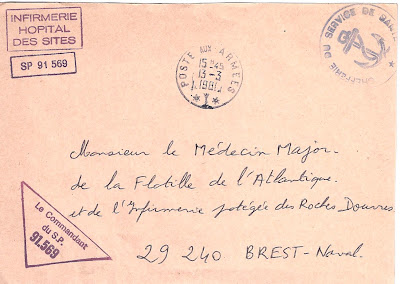 INFIRMERIE
HOPITAL
DES SITES
SP 91 569
POSTE AUX ARMEES
15 H45
13-3
1981
DU SERVICE DE SANTE
Monsieur le Médecin Major
de la Flotille de l'Atlantique
et de l'Infirmerie protégée des Roches Douvres
29 240 BREST-Naval
Le Commandant
du S.P.
91.569